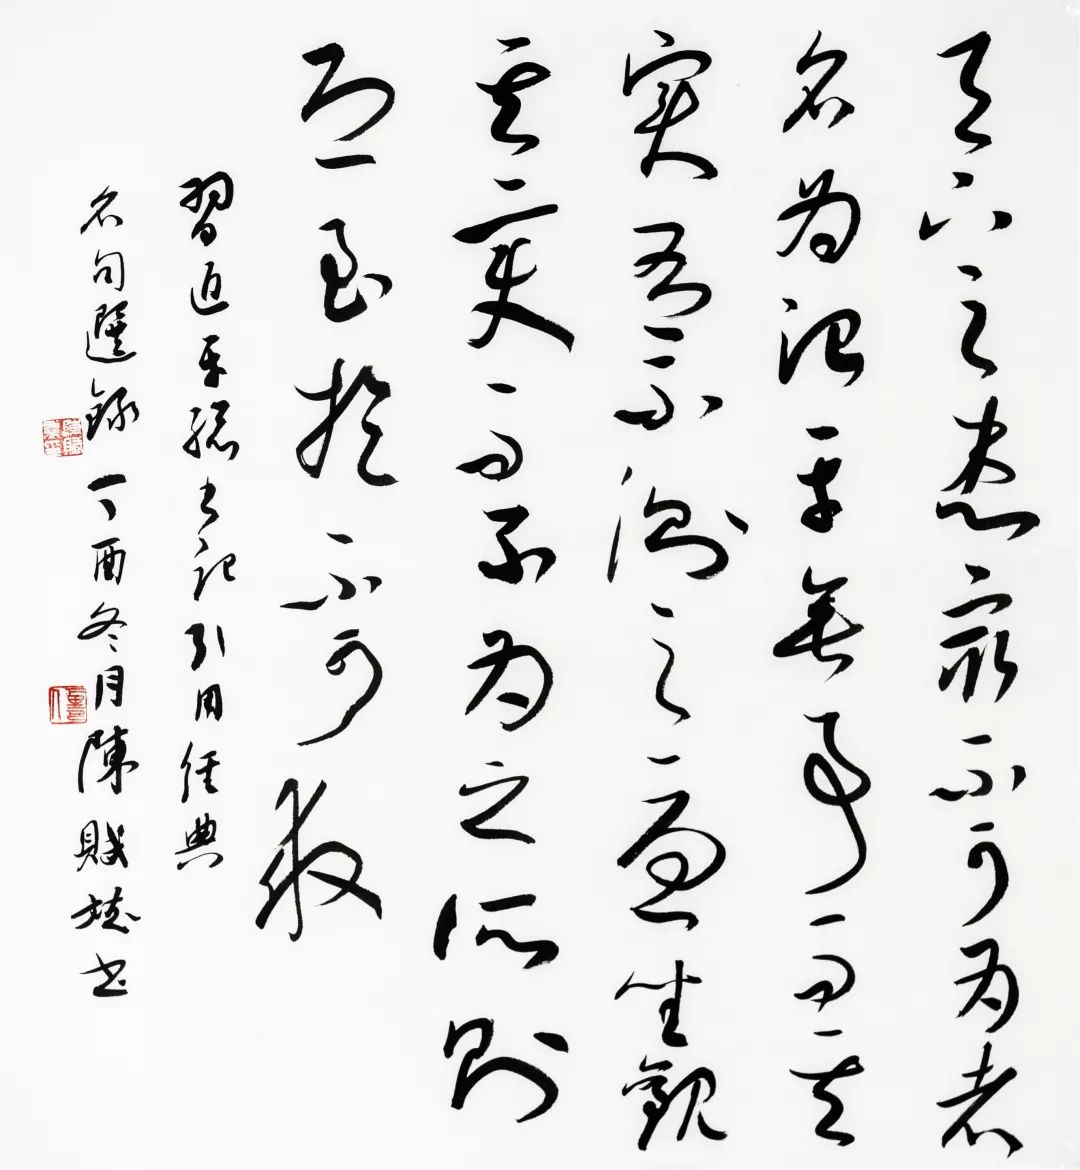 天下之患最不可为者
名为治平無事而其
实有不测之忧坐觀
其变而不为之所则
恐至於不可救
習近平總书記引用經典
名句選錄丁酉冬月陳賦书